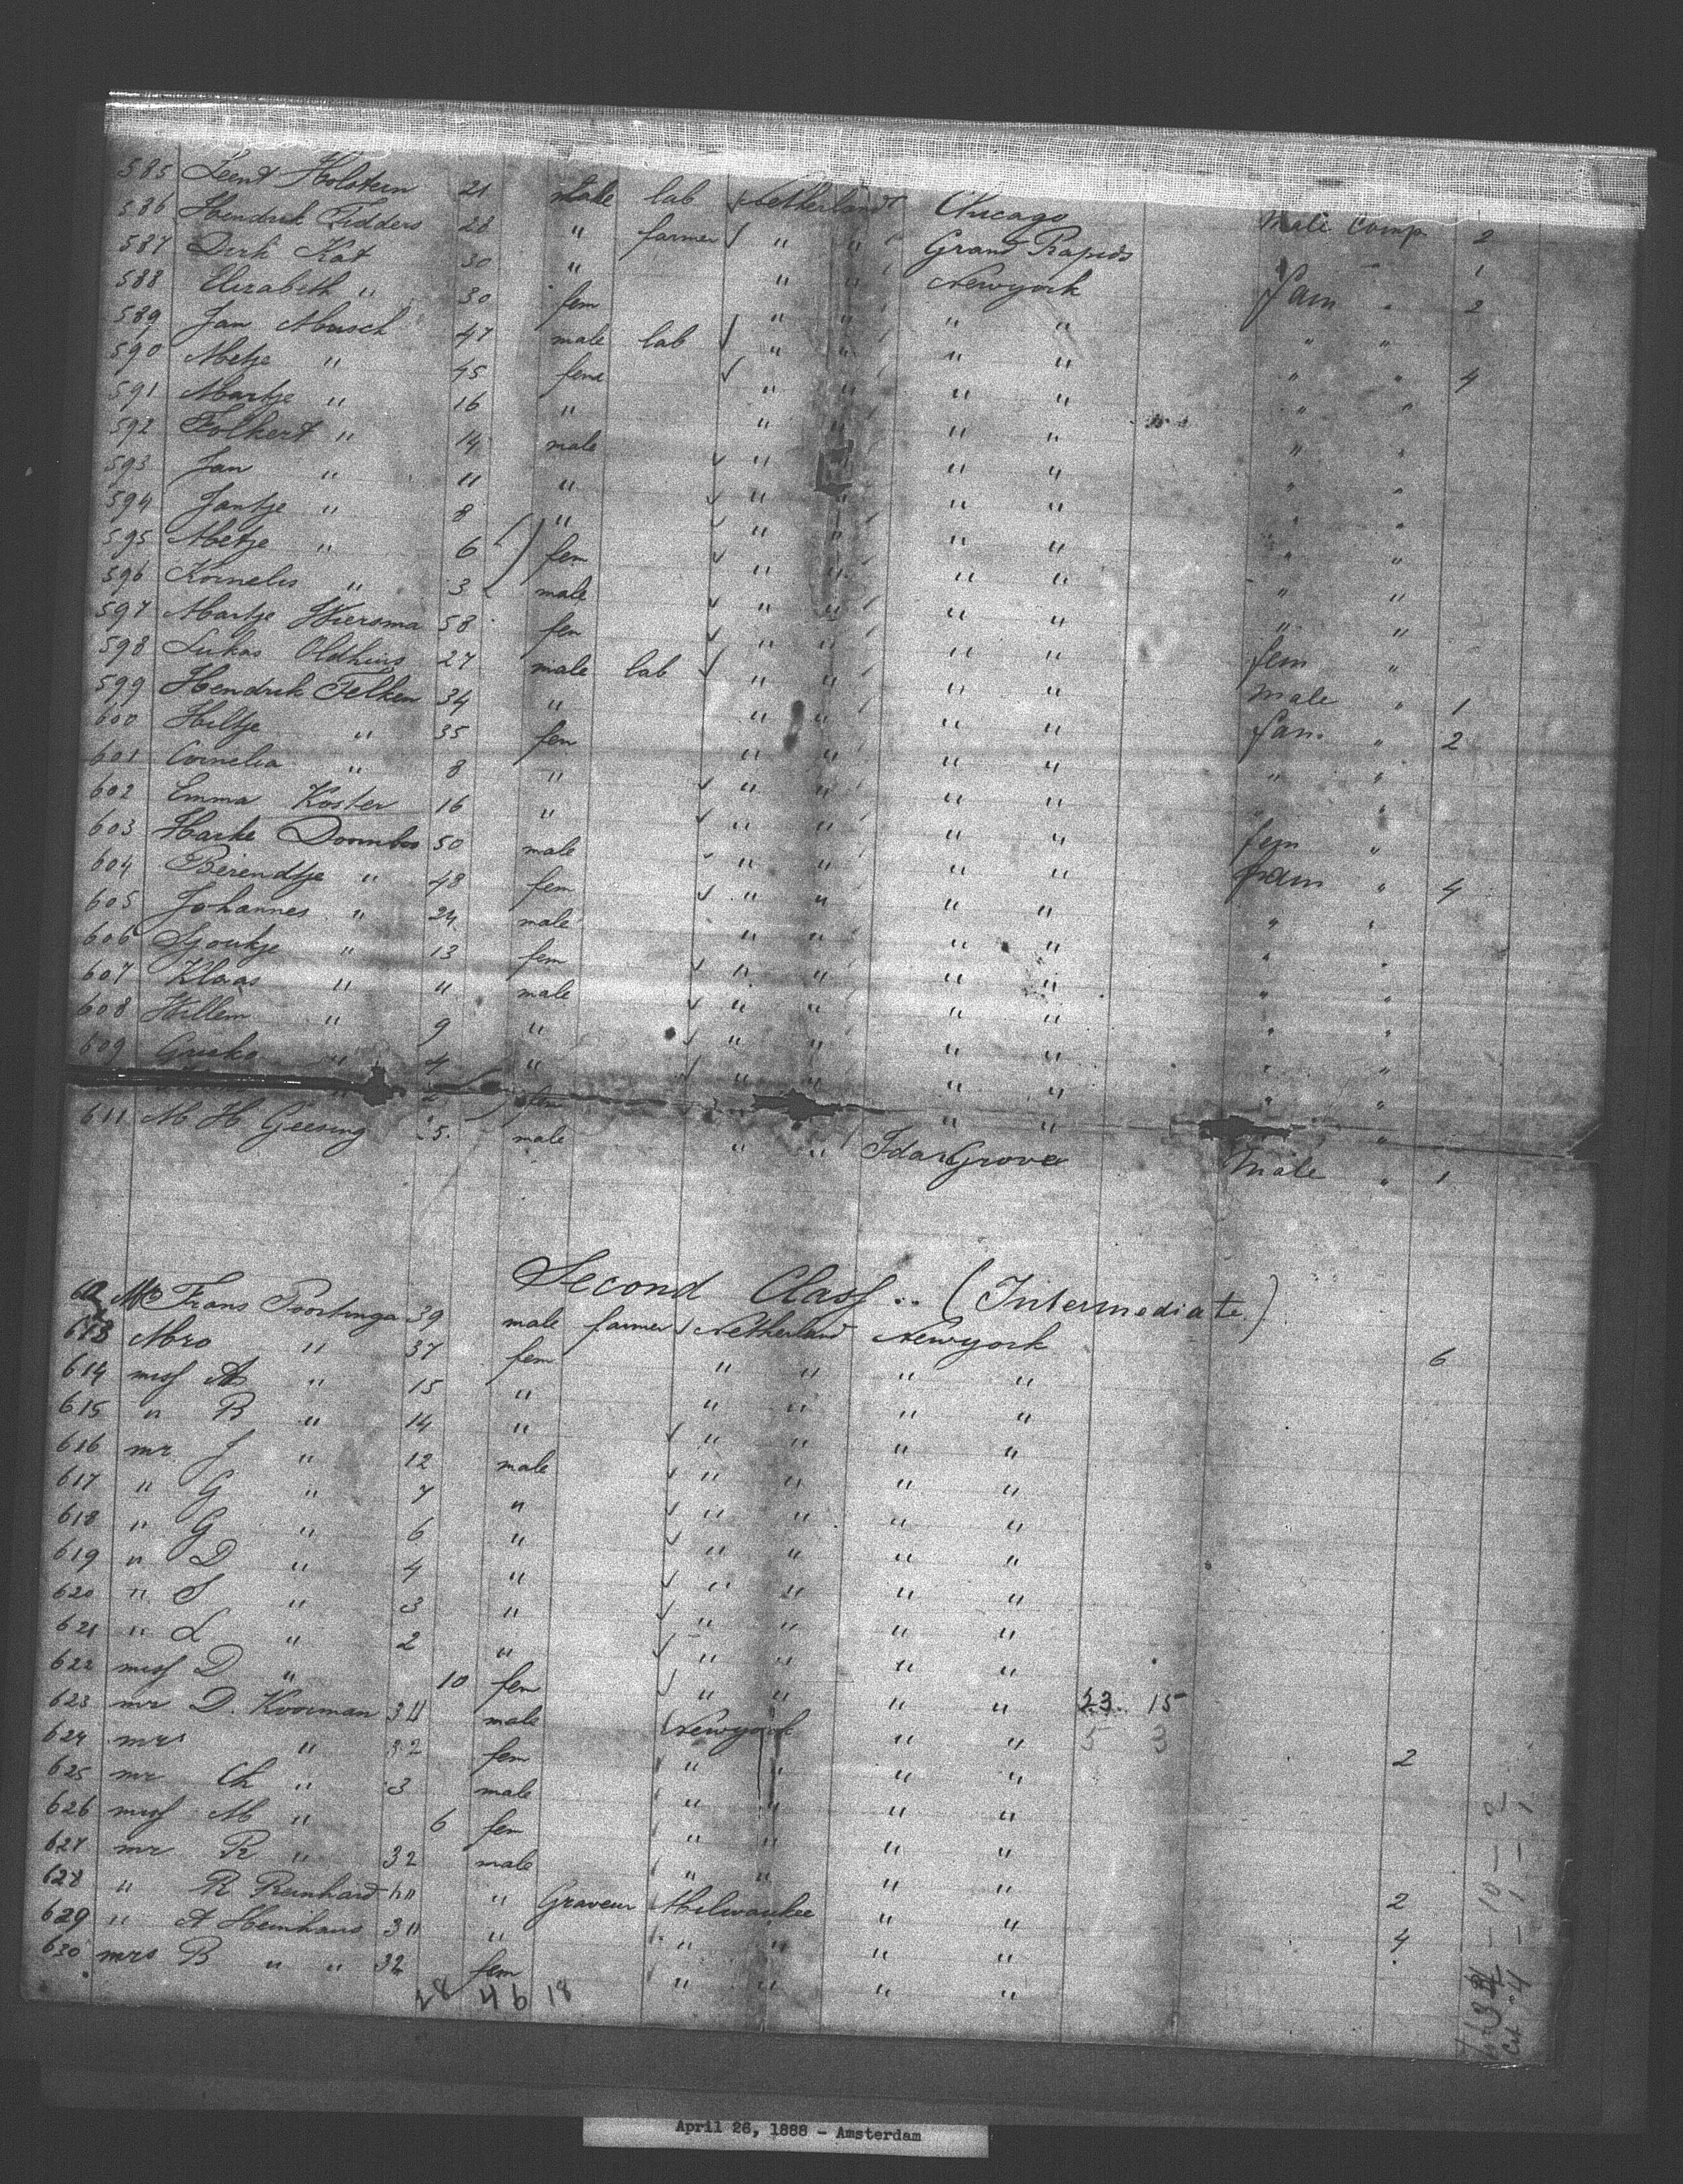 585 Leent Holstein 21 male lab Netherland Chicago Male Comp 2
586 Hendrik Fidders 28 " farmer " " Grand Rapids 1
587 Dirk Kat 30 " " " Newyork Fam " 2
588 Elizabeth " 30 fem " " " " " "
589 Jan Musch 47 male lab " " " " " " 4
590 Metje " 45 fem " " " " " "
591 Martje " 16 " " " " " " "
592 Folkert " 14 male " " " " " "
593 Jan " 11 " " " " " " "
594 Jantje " 8 " " " " " " "
595 Metje " 6 fem " " " " " "
596 Kornelis " 3 male " " " " " "
597 Martje Wiersma 58 fem " " " " fem "
598 Lukas Oldhuis 27 male lab " " " " Male " 1
599 Hendrik Felken 34 " " " " " fam. " 2
600 Hiltje " 35 fem " " " " " "
601 Cornelia " 8 " " " " " "
602 Emma Koster 16 " " " " " fem "
603 Harke Doornbos 50 male " " " " Fam " 4
604 Berendtje " 48 fem " " " " " "
605 Johannes " 24 male " " " " " "
606 Sjoukje " 13 fem " " " " " "
607 Klaas " 11 male " " " " " "
608 Willem " 9 " " " " " " "
609 " 4 " " " " " " "
" 2 fem " " " " "
611 M H Geesing 5. male " " Ida Grove Male " 1
Second Class .. (Intermediate)
612 Mr Frans Poortinga 39 male farmer Netherland Newyork 6
613 Mrs " 37 fem " " " "
614 miss A " 15 " " " " "
615 " B " 14 " " " " "
616 mr J " 12 male " " " "
617 " G " 7 " " " " "
618 " G " 6 " " " " "
619 " D " 4 " " " " "
620 " S " 3 " " " " "
621 " L " 2 " " " " "
622 miss D " 10 fem " " " " 23. 15
623 mr D. Kooiman 34 male Newyork " " 5 3 2
624 mrs " 32 fem " " " "
625 mr Ch " 3 male " " " "
626 miss M " 6 fem " " " "
627 mr R " 32 male " " " " 2
628 " R Reinhard " Graveur Milwaukee " " 4
629 " A Heinhaus 30 " " " " "
630 mrs B " " 32 fem " " " "
28 46 18
April 26, 1888 - Amsterdam